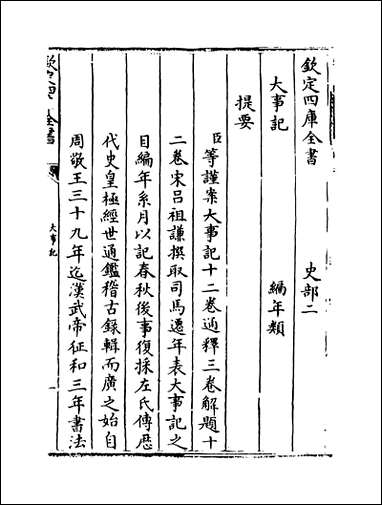 欽定四庫全書
史部二
大事記
編年類
提要
臣等謹案大事記十二卷通釋三卷解題十
二卷宋呂祖謙撰取司馬遷年表大事記之
目編年系月以記春秋後事復採左氏傳歴
代史皇極經世通鑑稽古録輯而廣之始自
周敬王三十九年迄漢武帝征和三年書法
大事記